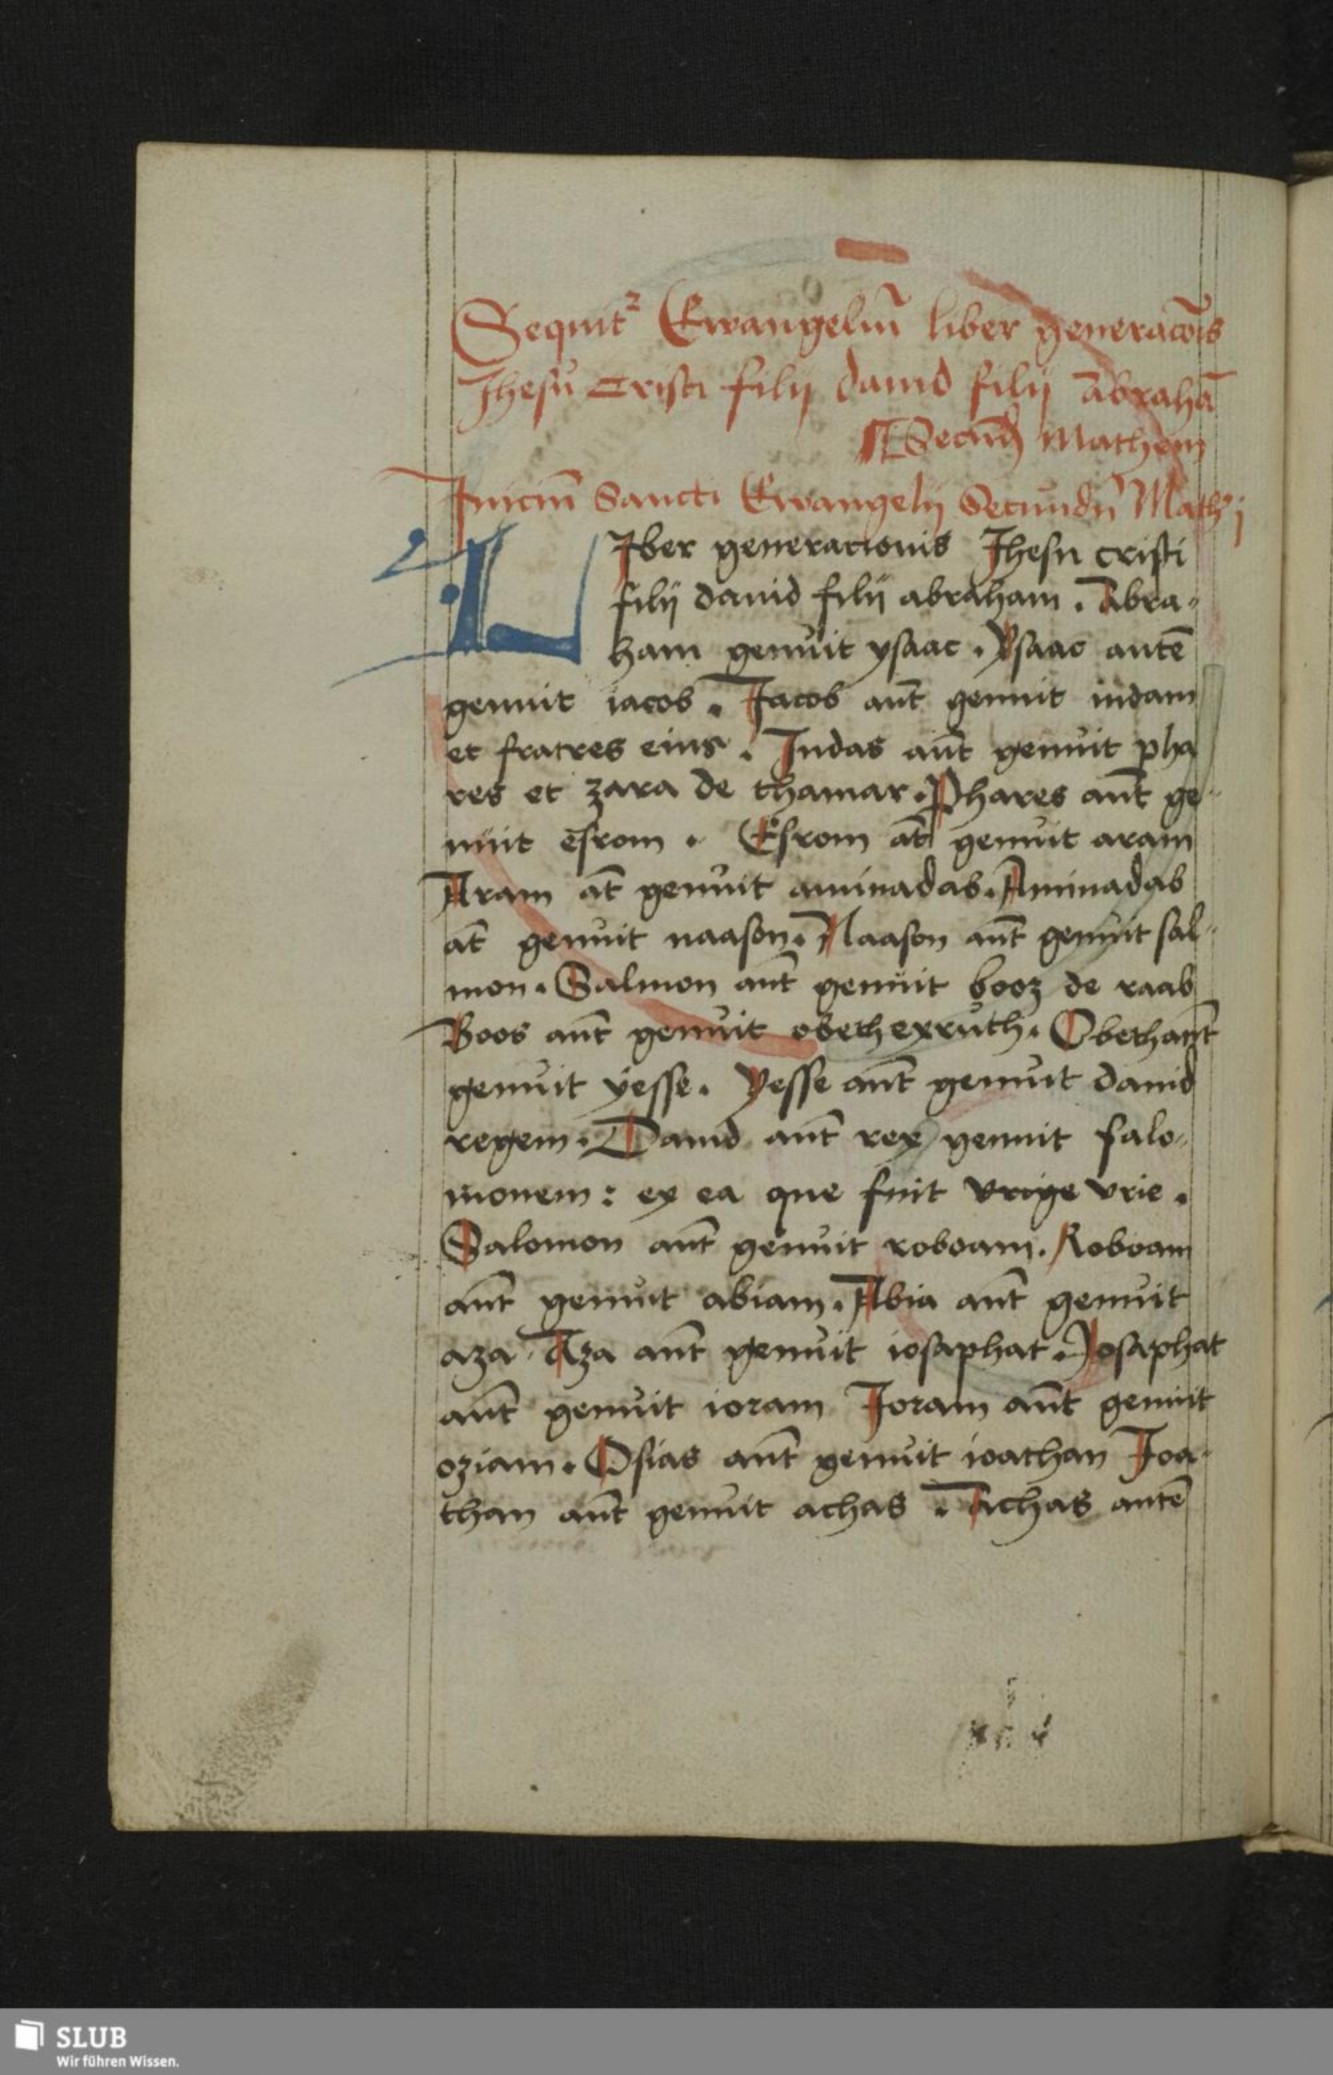 Sequit᷑ Ewangeliū liber generacōis
Jhesu Cristi filij dauid filij Abrahā
Secūd Mathem
Iniciū Sancti Ewangelij Secundū Mathꝫ
LIber generacionis Jhesu cristi
filij dauid filij abraham . Abra-
ham genuit ysaac . Ysaac autē
genuit iacob . Jacob aūt genuit iudam
et fratres eius . Judas aūt genuit pha
res et zara de thamar . Phares aūt ge-
nuit esrom . Esrom āt genuit aram
Aram āt genuit aminadab . Aminadab
āt genuit naason . Naason aūt genuit sal-
mon . Salmon aūt genuit booz de raab
Boos aūt genuit obeth exruth . Obeth aūt
genuit yesse . Yesse aūt genuit dauid
regem . Dauid aūt rex genuit salo-
monem : ex ea que fuit vrige vrie .
Salomon aūt genuit roboam . Roboam
aūt genuit abiam . Abia aūt genuit
aza . Aza aūt genuit iosaphat . Josaphat
aūt genuit ioram Joram aūt genuit
oziam . Osias aūt genuit ioathan Joa-
than aūt genuit achas . Achas autē
SLUB
Wir führen Wissen.